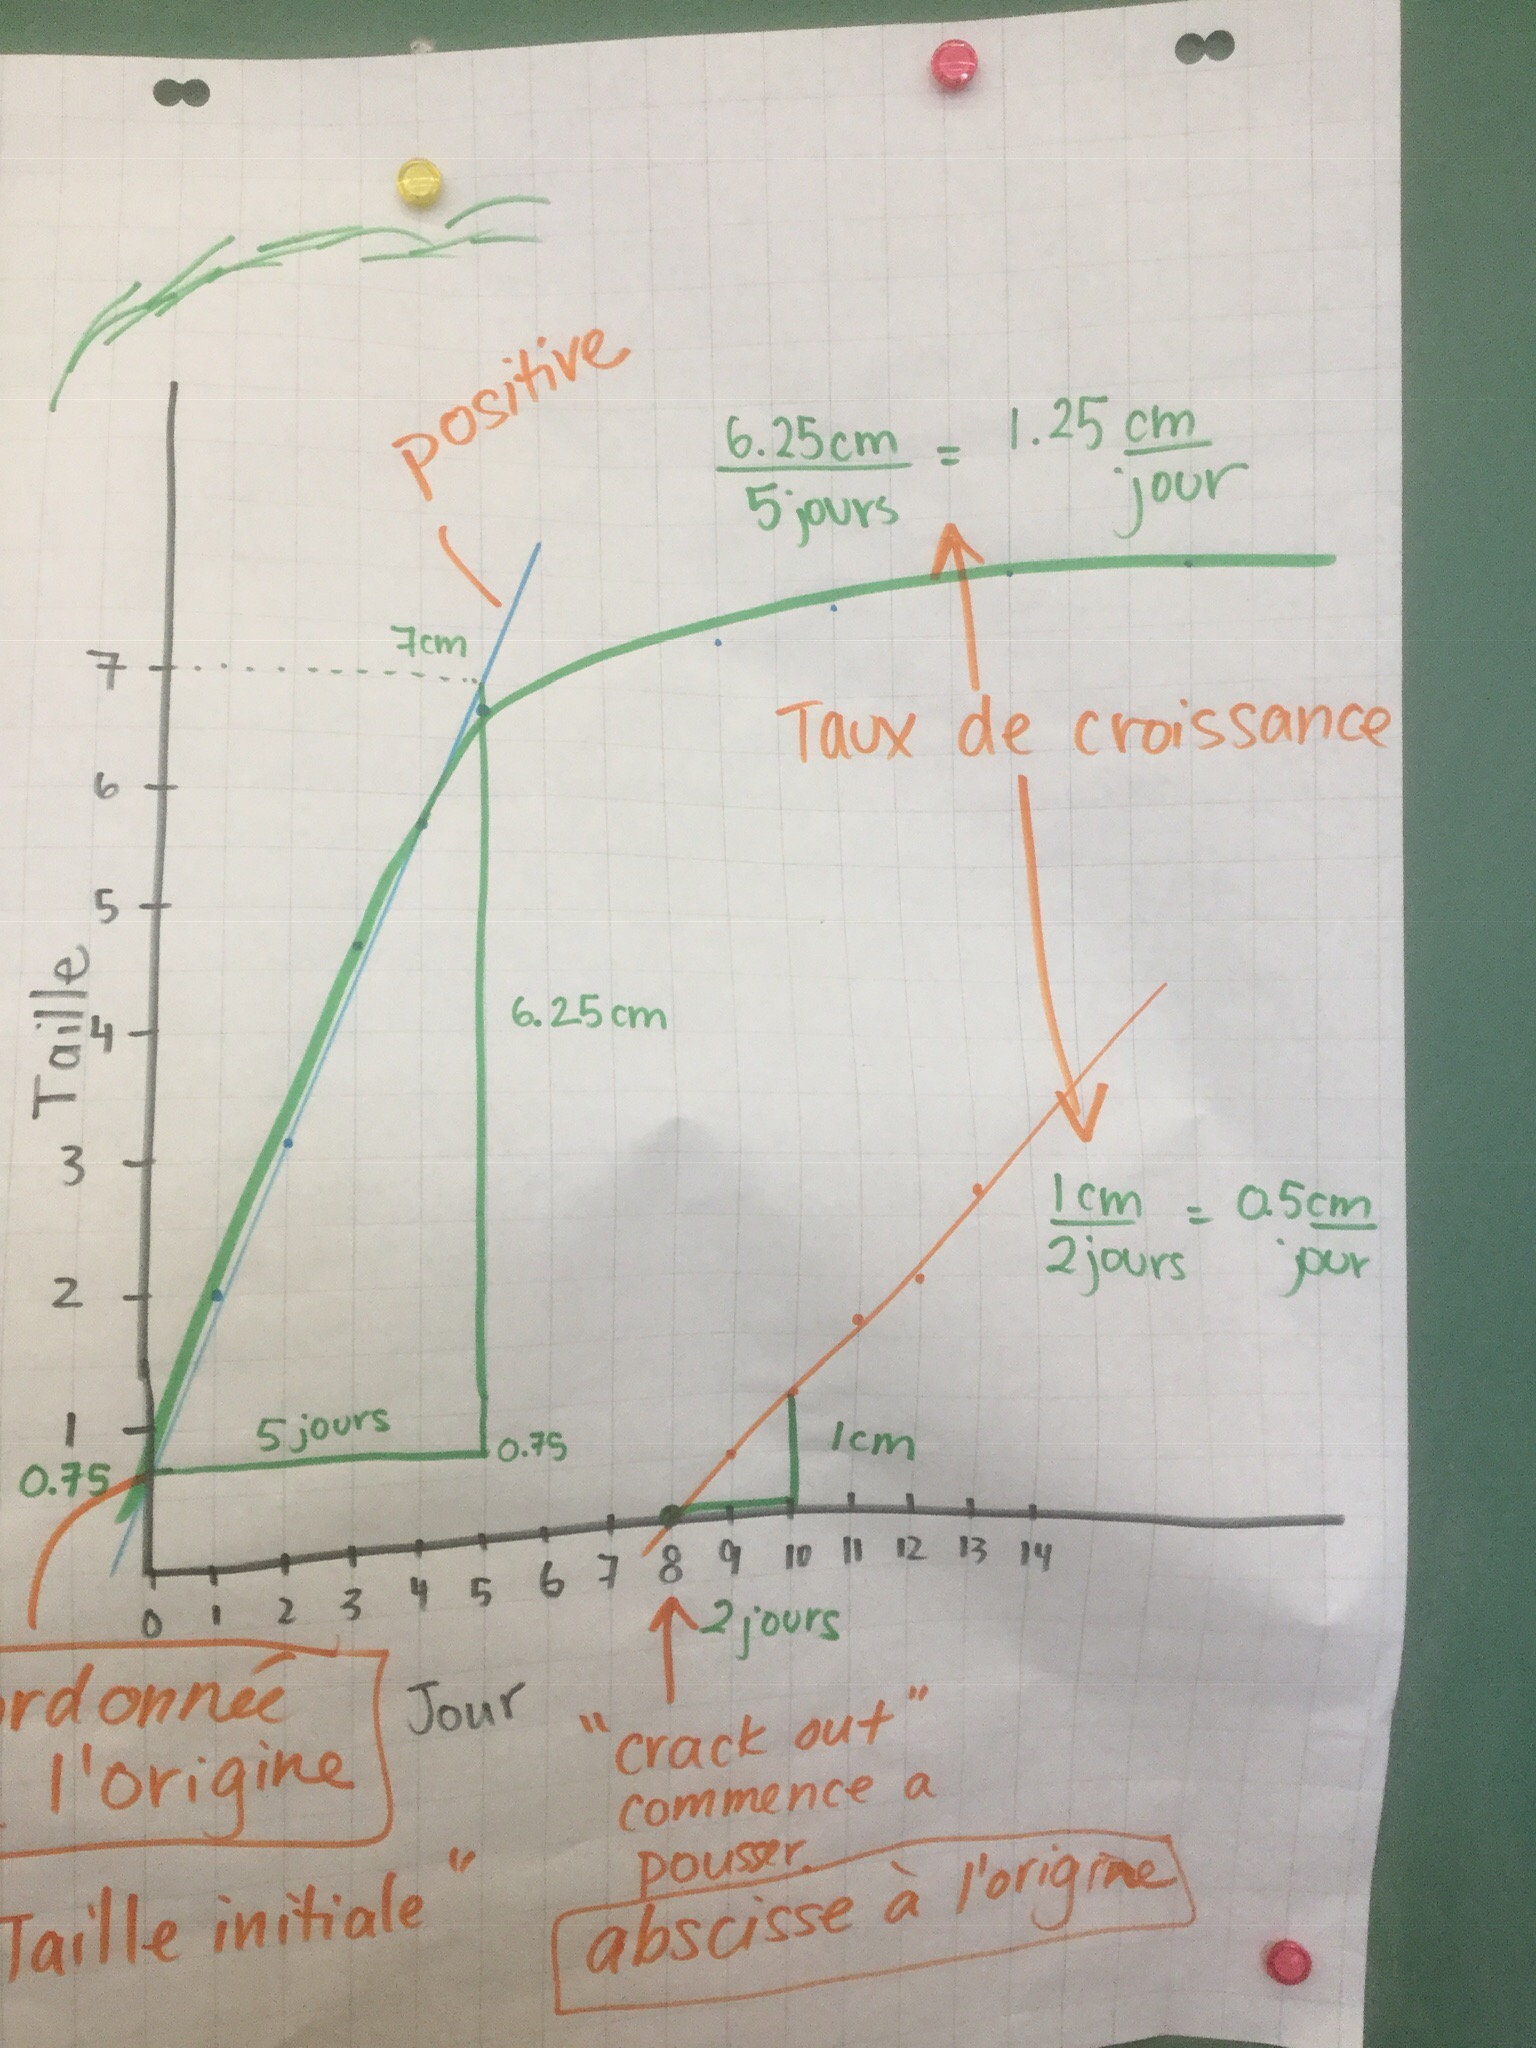 positive
6.25cm
5jours
=
1.25 cm
jour
7cm
7
6
5
4
3
2
1
0.75
Taille
Taux de croissance
6.25cm
5 jours
0.75
1cm
2jours
=
0.5cm
jour
1cm
0 1 2 3 4 5 6 7 8 9 10 11 12 13 14
2jours
Jour
rdonnée
l'origine
Taille initiale"
"crack out"
commence a
pousser.
abscisse à l'origine